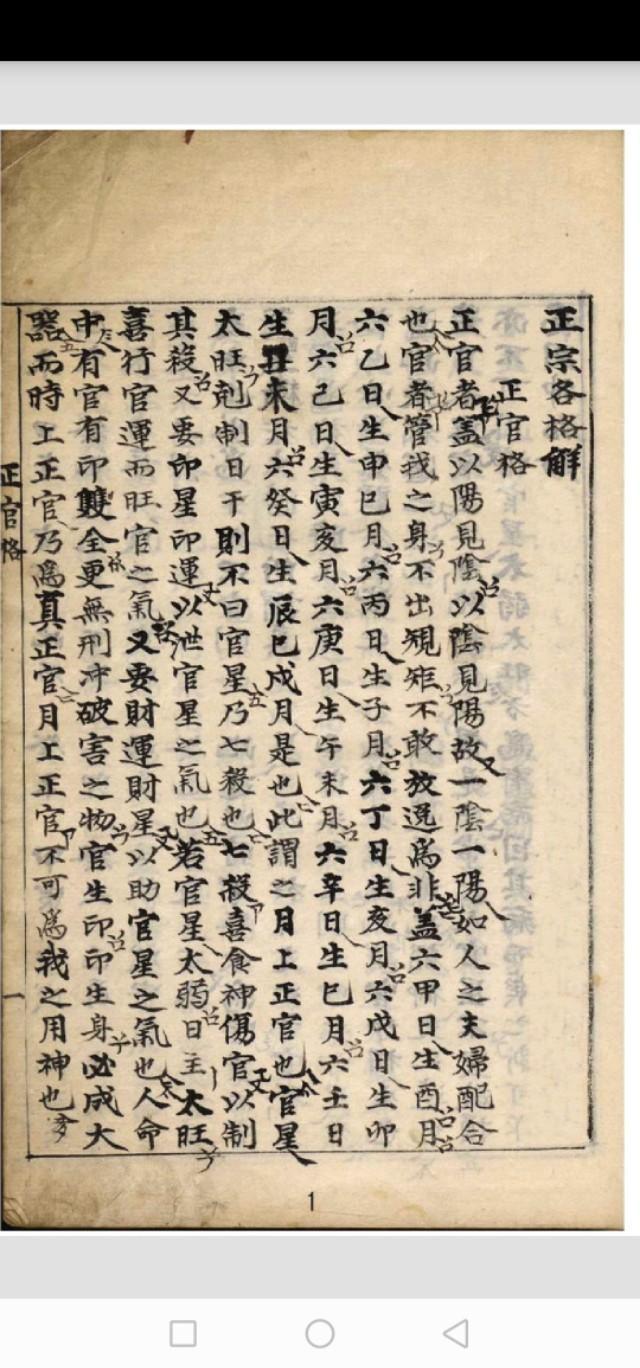 正宗各格解
正官格
正官者盖以陽見陰以陰見陽故一陰一陽如人之夫婦配合
也官者管我之身不出規矩不敢放逸為非盖六甲日生酉月
六乙日生申巳月六丙日生子月六丁日生亥月六戊日生卯
月六己日生寅亥月六庚日生午未月六辛日生巳月六壬日
生丑未月六癸日生辰巳戌月是也此謂之月上正官也官星
太旺剋制日干則不曰官星乃七殺也七殺喜食神傷官以制
其殺又要印星印運以泄官星之氣也若官星太弱日主太旺
喜行官運而旺官之氣又要財運財星以助官星之氣也人命
中有官有印雙全更無刑冲破害之物官生印印生身必成大
器而時上正官乃為真正官月上正官不可為我之用神也
正官格
一
1